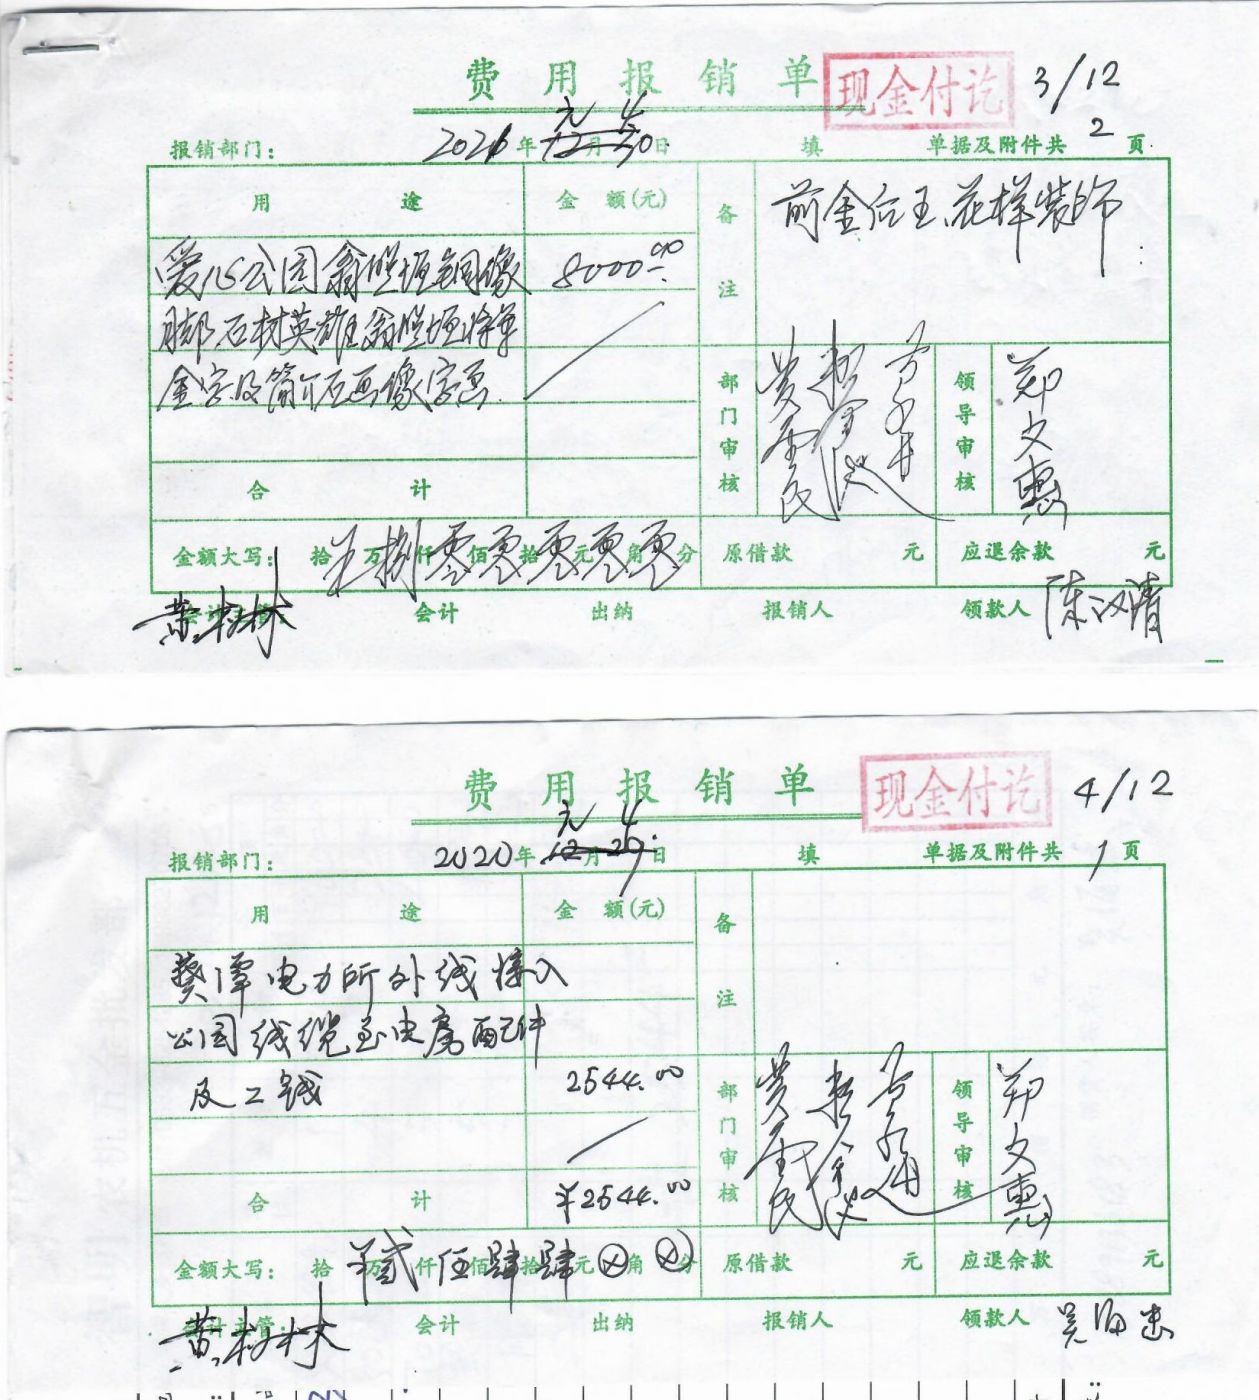 费用报销单 现金付讫 3/12
报销部门： 2021年 元月4日 填 单据及附件共 2 页
用途 金额(元) 备注 前金后王花样装饰
爱心公园翁照垣铜像 8000.00
脚石材英雄翁照垣将军
金字及简介石画像字画
部门审核 领导审核 郑文惠
合计
金额大写： 拾 万捌仟零佰零拾零元零角零分 原借款 元 应退余款 元
黄树林 会计主管： 会计 出纳 报销人 领款人 陈汉清
费用报销单 现金付讫 4/12
报销部门： 2020年 元月4日 填 单据及附件共 1 页
用途 金额(元) 备注
葵潭电力所外线接入
公园线缆至电房配件
及工钱 2544.00
部门审核 领导审核 郑文惠
合计 ¥2544.00
金额大写： 拾 万贰仟伍佰肆拾肆元⊗角⊗分 原借款 元 应退余款 元
黄树林 会计主管： 会计 出纳 报销人 领款人 吴海忠